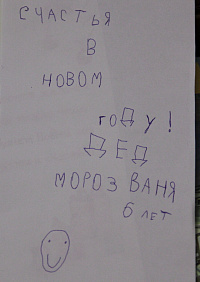 СЧАСТЬЯ
В
НОВОМ
гоДу!
ДЕД
МОРОЗ ВАНЯ
6 лет